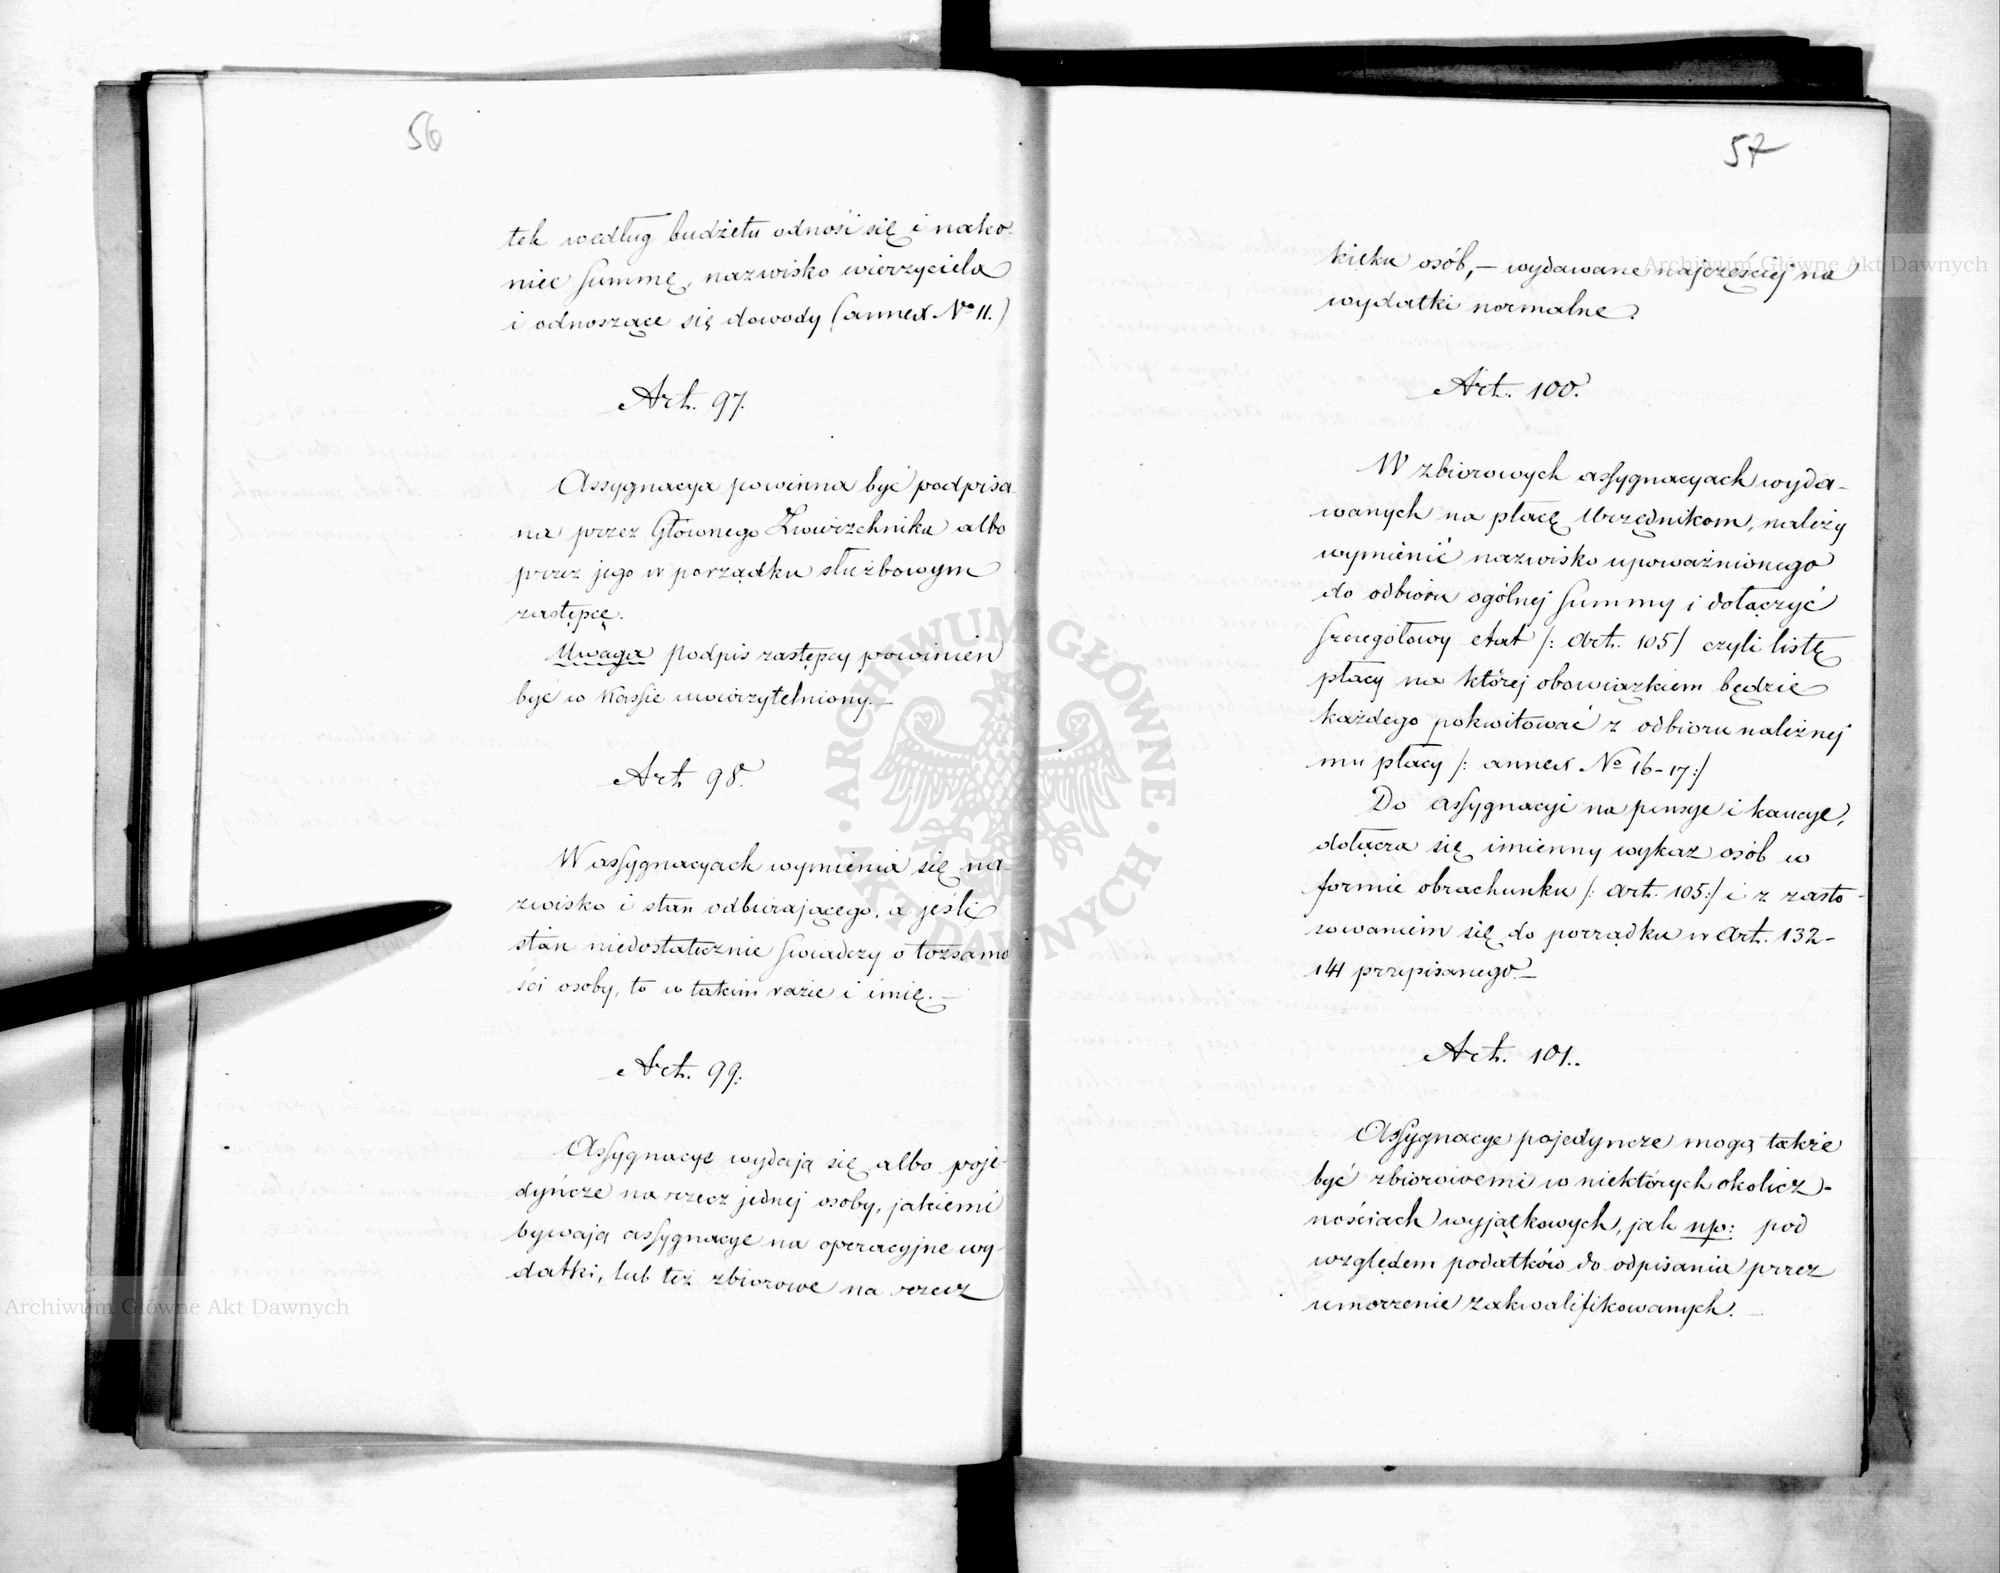 56
tek według budżetu odnosi się i nako-
niec summę, nazwisko wierzyciela
i odnoszące się dowody (annex No 11.)
Art. 97.
Assygnacya powinna być podpisa-
na przez Głównego Zwierzchnika albo
przez jego w porządku służbowym
zastępcę.
Uwaga podpis zastępcy powinien
być w kassie uwierzytelniony.—
Art. 98.
W assygnacyach wymienia się na-
zwisko i stan odbierającego, a jeśli
stan niedostatecznie świadczy o tożsamo
ści osoby, to w takim razie i imię.—
Art. 99.
Assygnacye wydają się albo poje-
dyńcze na rzecz jednej osoby, jakiemi
bywają assygnacye na operacyjne wy-
datki, lub też zbiorowe na rzecz
57
kilku osób,— wydawane najczęściej na
wydatki normalne.
Art. 100.
W zbiorowych assygnacyach wyda-
wanych na płacę Urzędnikom, należy
wymienić nazwisko upoważnionego
do odbioru ogólnej summy i dołączyć
szczegółowy etat /: Art. 105/ czyli listę
płacy na której obowiązkiem będzie
każdego pokwitować z odbioru należnej
mu płacy /: annex No 16-17:/
Do assygnacyi na pensye i kaucye,
dołącza się imienny wykaz osób w
formie obrachunku /: art. 105:/ i z zasto-
sowaniem się do porządku w Art. 132-
141 przepisanego.—
Art. 101.
Assygnacye pojedyncze mogą także
być zbiorowemi w niektórych okolicz-
nościach wyjątkowych, jak np: pod
względem podatków do odpisania przez
umorzenie zakwalifikowanych.—
Archiwum Główne Akt Dawnych
Archiwum Główne Akt Dawnych
ARCHIWUM GŁÓWNE AKT DAWNYCH